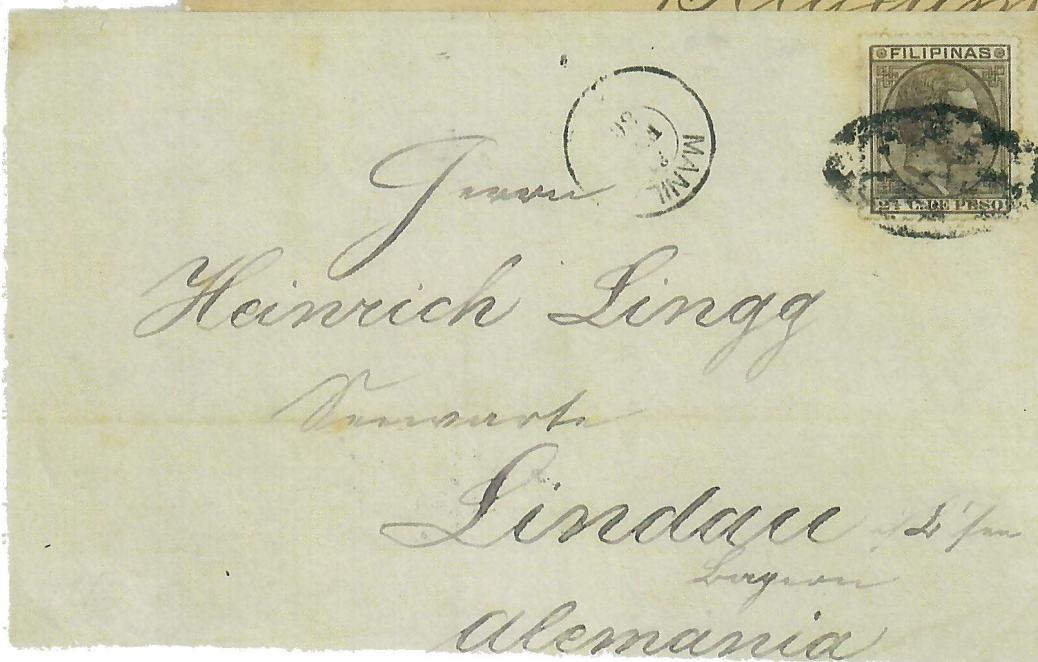 FILIPINAS
DE PESO
MANIL
Herrn
Heinrich Lingg
Seewarte
Lindau
Bayern
Alemania